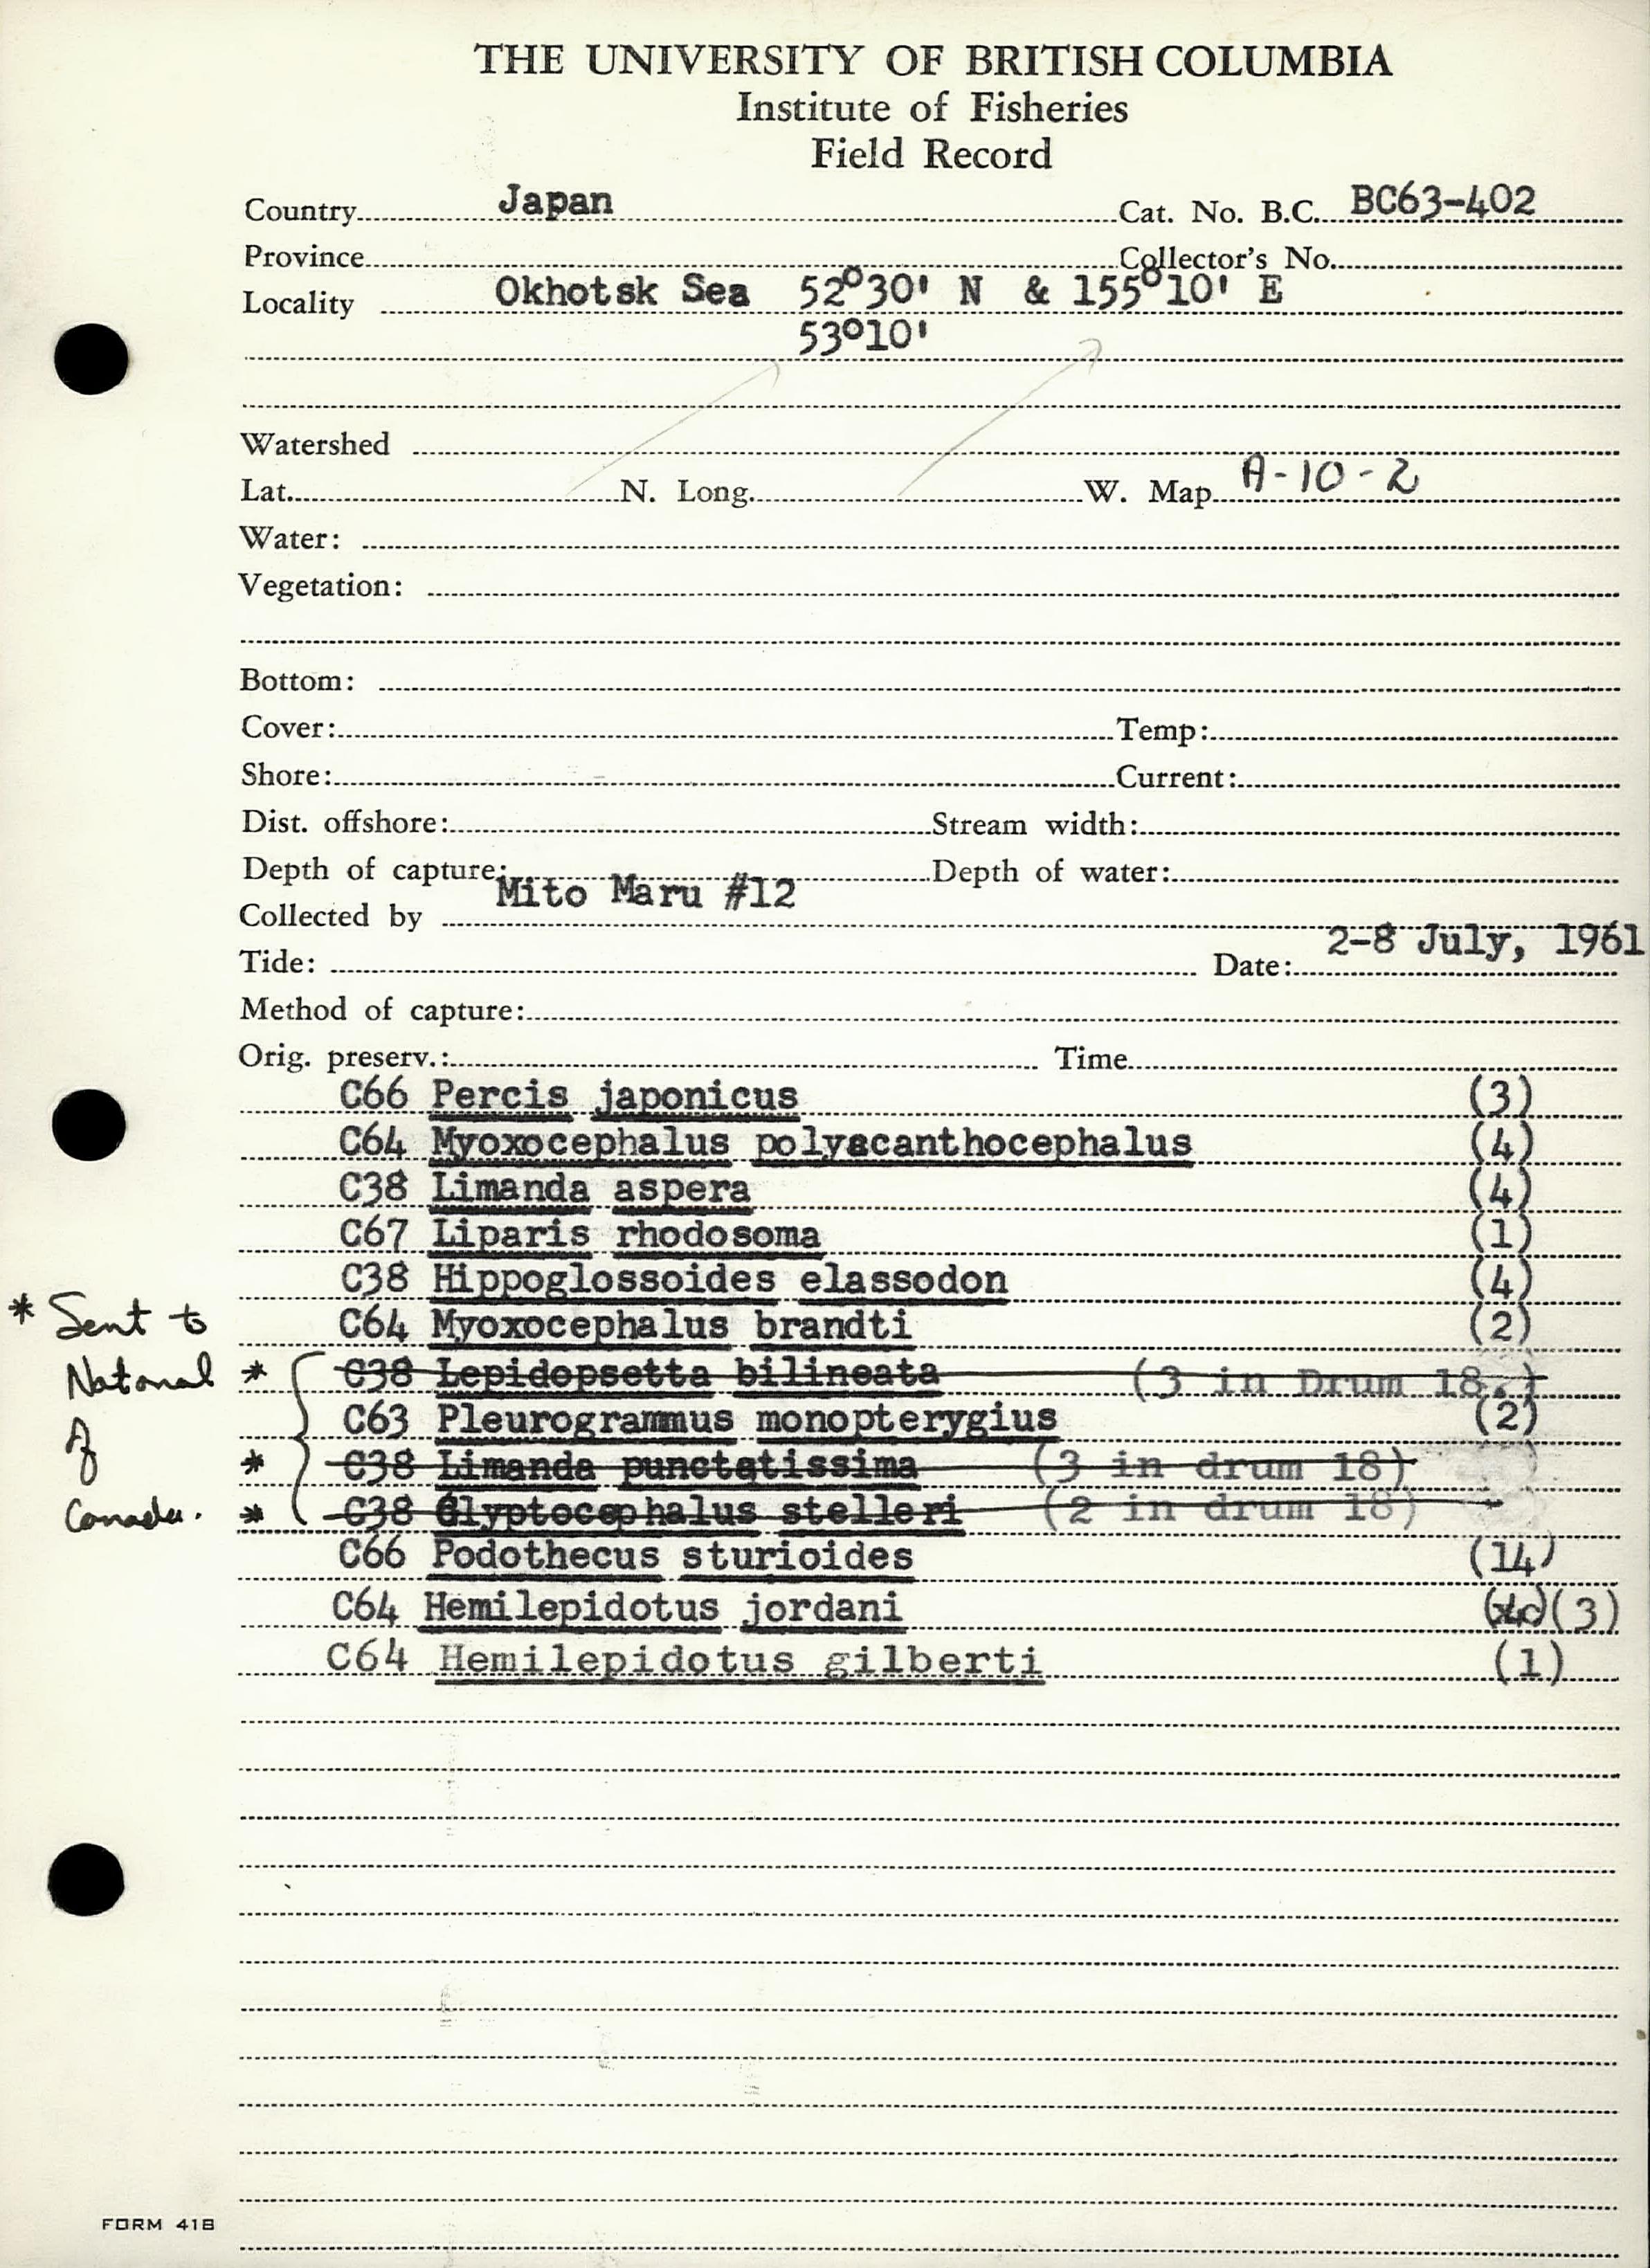 THE UNIVERSITY OF BRITISH COLUMBIA
Institute of Fisheries
Field Record
Country Japan Cat. No. B.C. BC63-402
Province Collector's No.
Locality Okhotsk Sea 52°30' N & 155°10' E
53°10'
Watershed
Lat. N. Long. W. Map A-10-2
Water:
Vegetation:
Bottom:
Cover: Temp:
Shore: Current:
Dist. offshore: Stream width:
Depth of capture: Depth of water:
Collected by Mito Maru #12
Tide: Date: 2-8 July, 1961
Method of capture:
Orig. preserv.: Time
C66 Percis japonicus (3)
C64 Myoxocephalus polyacanthocephalus (4)
C38 Limanda aspera (4)
C67 Liparis rhodosoma (1)
C38 Hippoglossoides elassodon (4)
C64 Myoxocephalus brandti (2)
* C38 Lepidopsetta bilineata (3 in Drum 18.)
C63 Pleurogrammus monopterygius (2)
* C38 Limanda punctatissima (3 in drum 18)
* C38 Glyptocephalus stelleri (2 in drum 18)
C66 Podothecus sturioides (14)
C64 Hemilepidotus jordani (3)
C64 Hemilepidotus gilberti (1)
* Sent to
Natonal
of
Canada.
FORM 41B